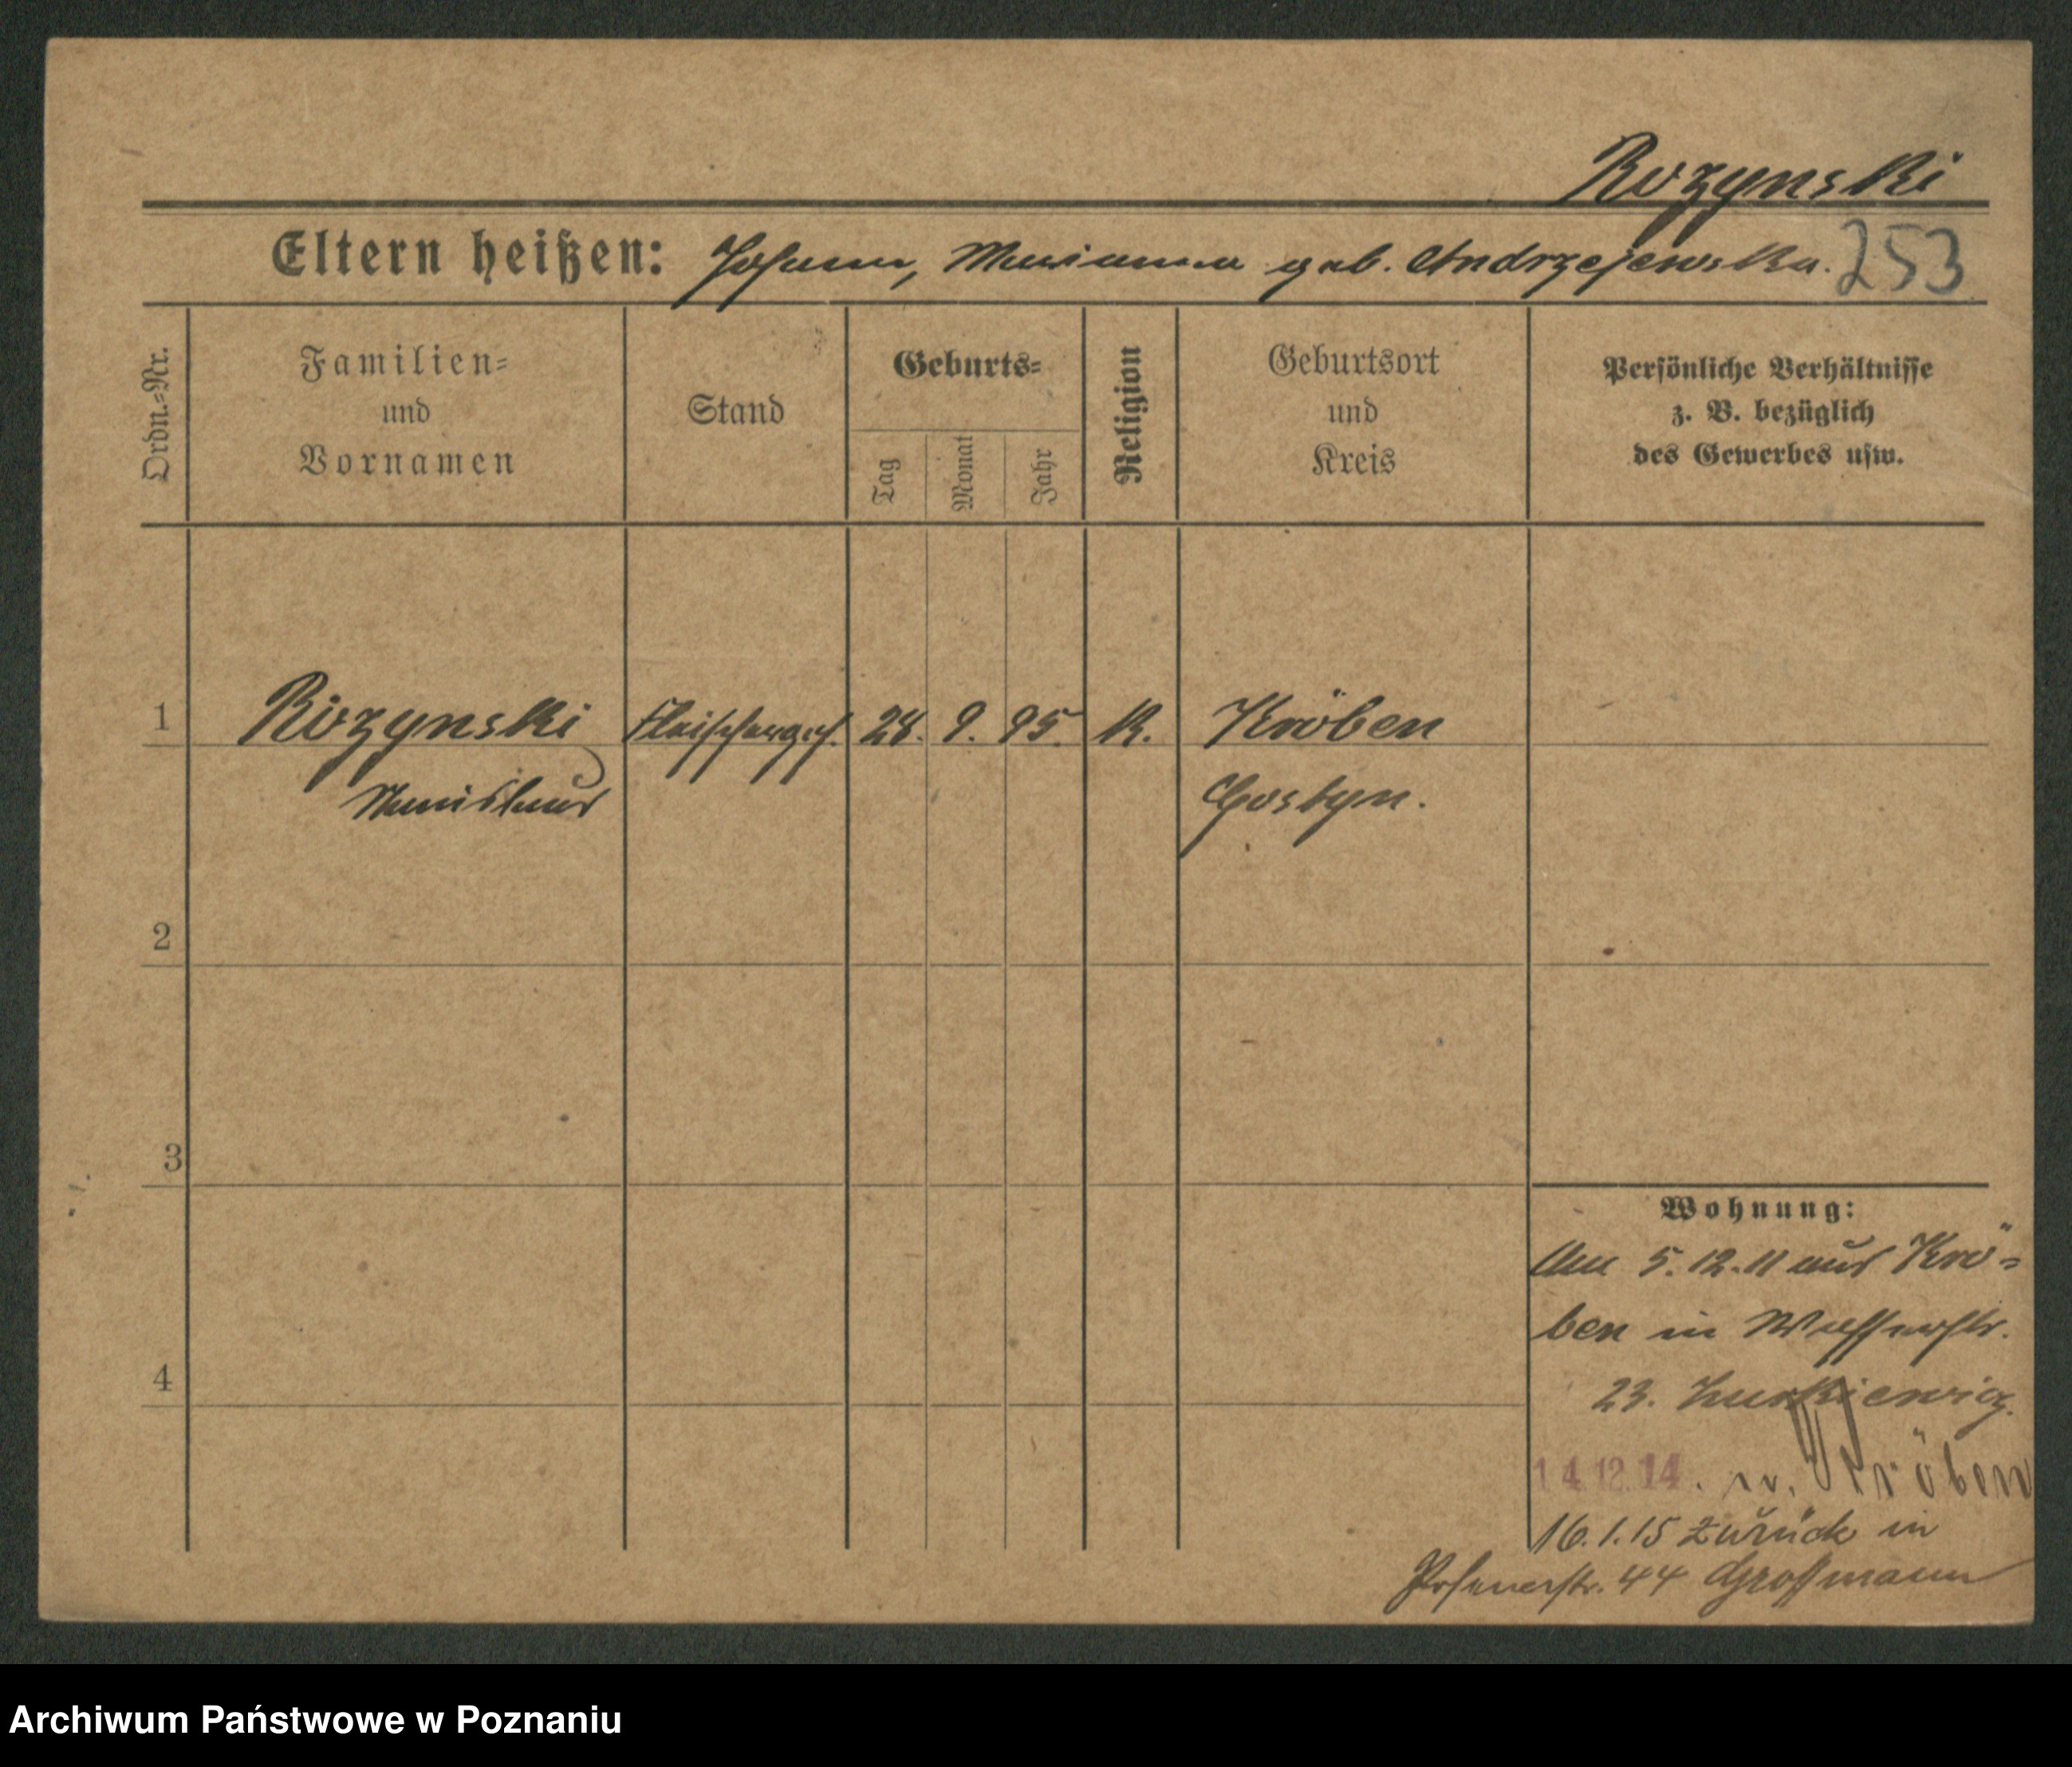 Rozynski
Eltern heißen: Johann, Marianna geb. Andrzejewska.
253
Ordn.-Nr.
Familien-
und
Vornamen
Stand
Geburts-
Tag
Monat
Jahr
Religion
Geburtsort
und
Kreis
Persönliche Verhältnisse
z. B. bezüglich
des Gewerbes usw.
1
Rozynski
Stanislaus
Fleischerges.
28. 9. 95.
K.
Kröben
Gostyn.
2
3
4
Wohnung:
Am 5.12.11 aus Krö-
ben in Wasserstr.
23.
14.12.14. n. Kröben
16.1.15 zurück in
Posenerstr. 44 Großmann
Archiwum Państwowe w Poznaniu